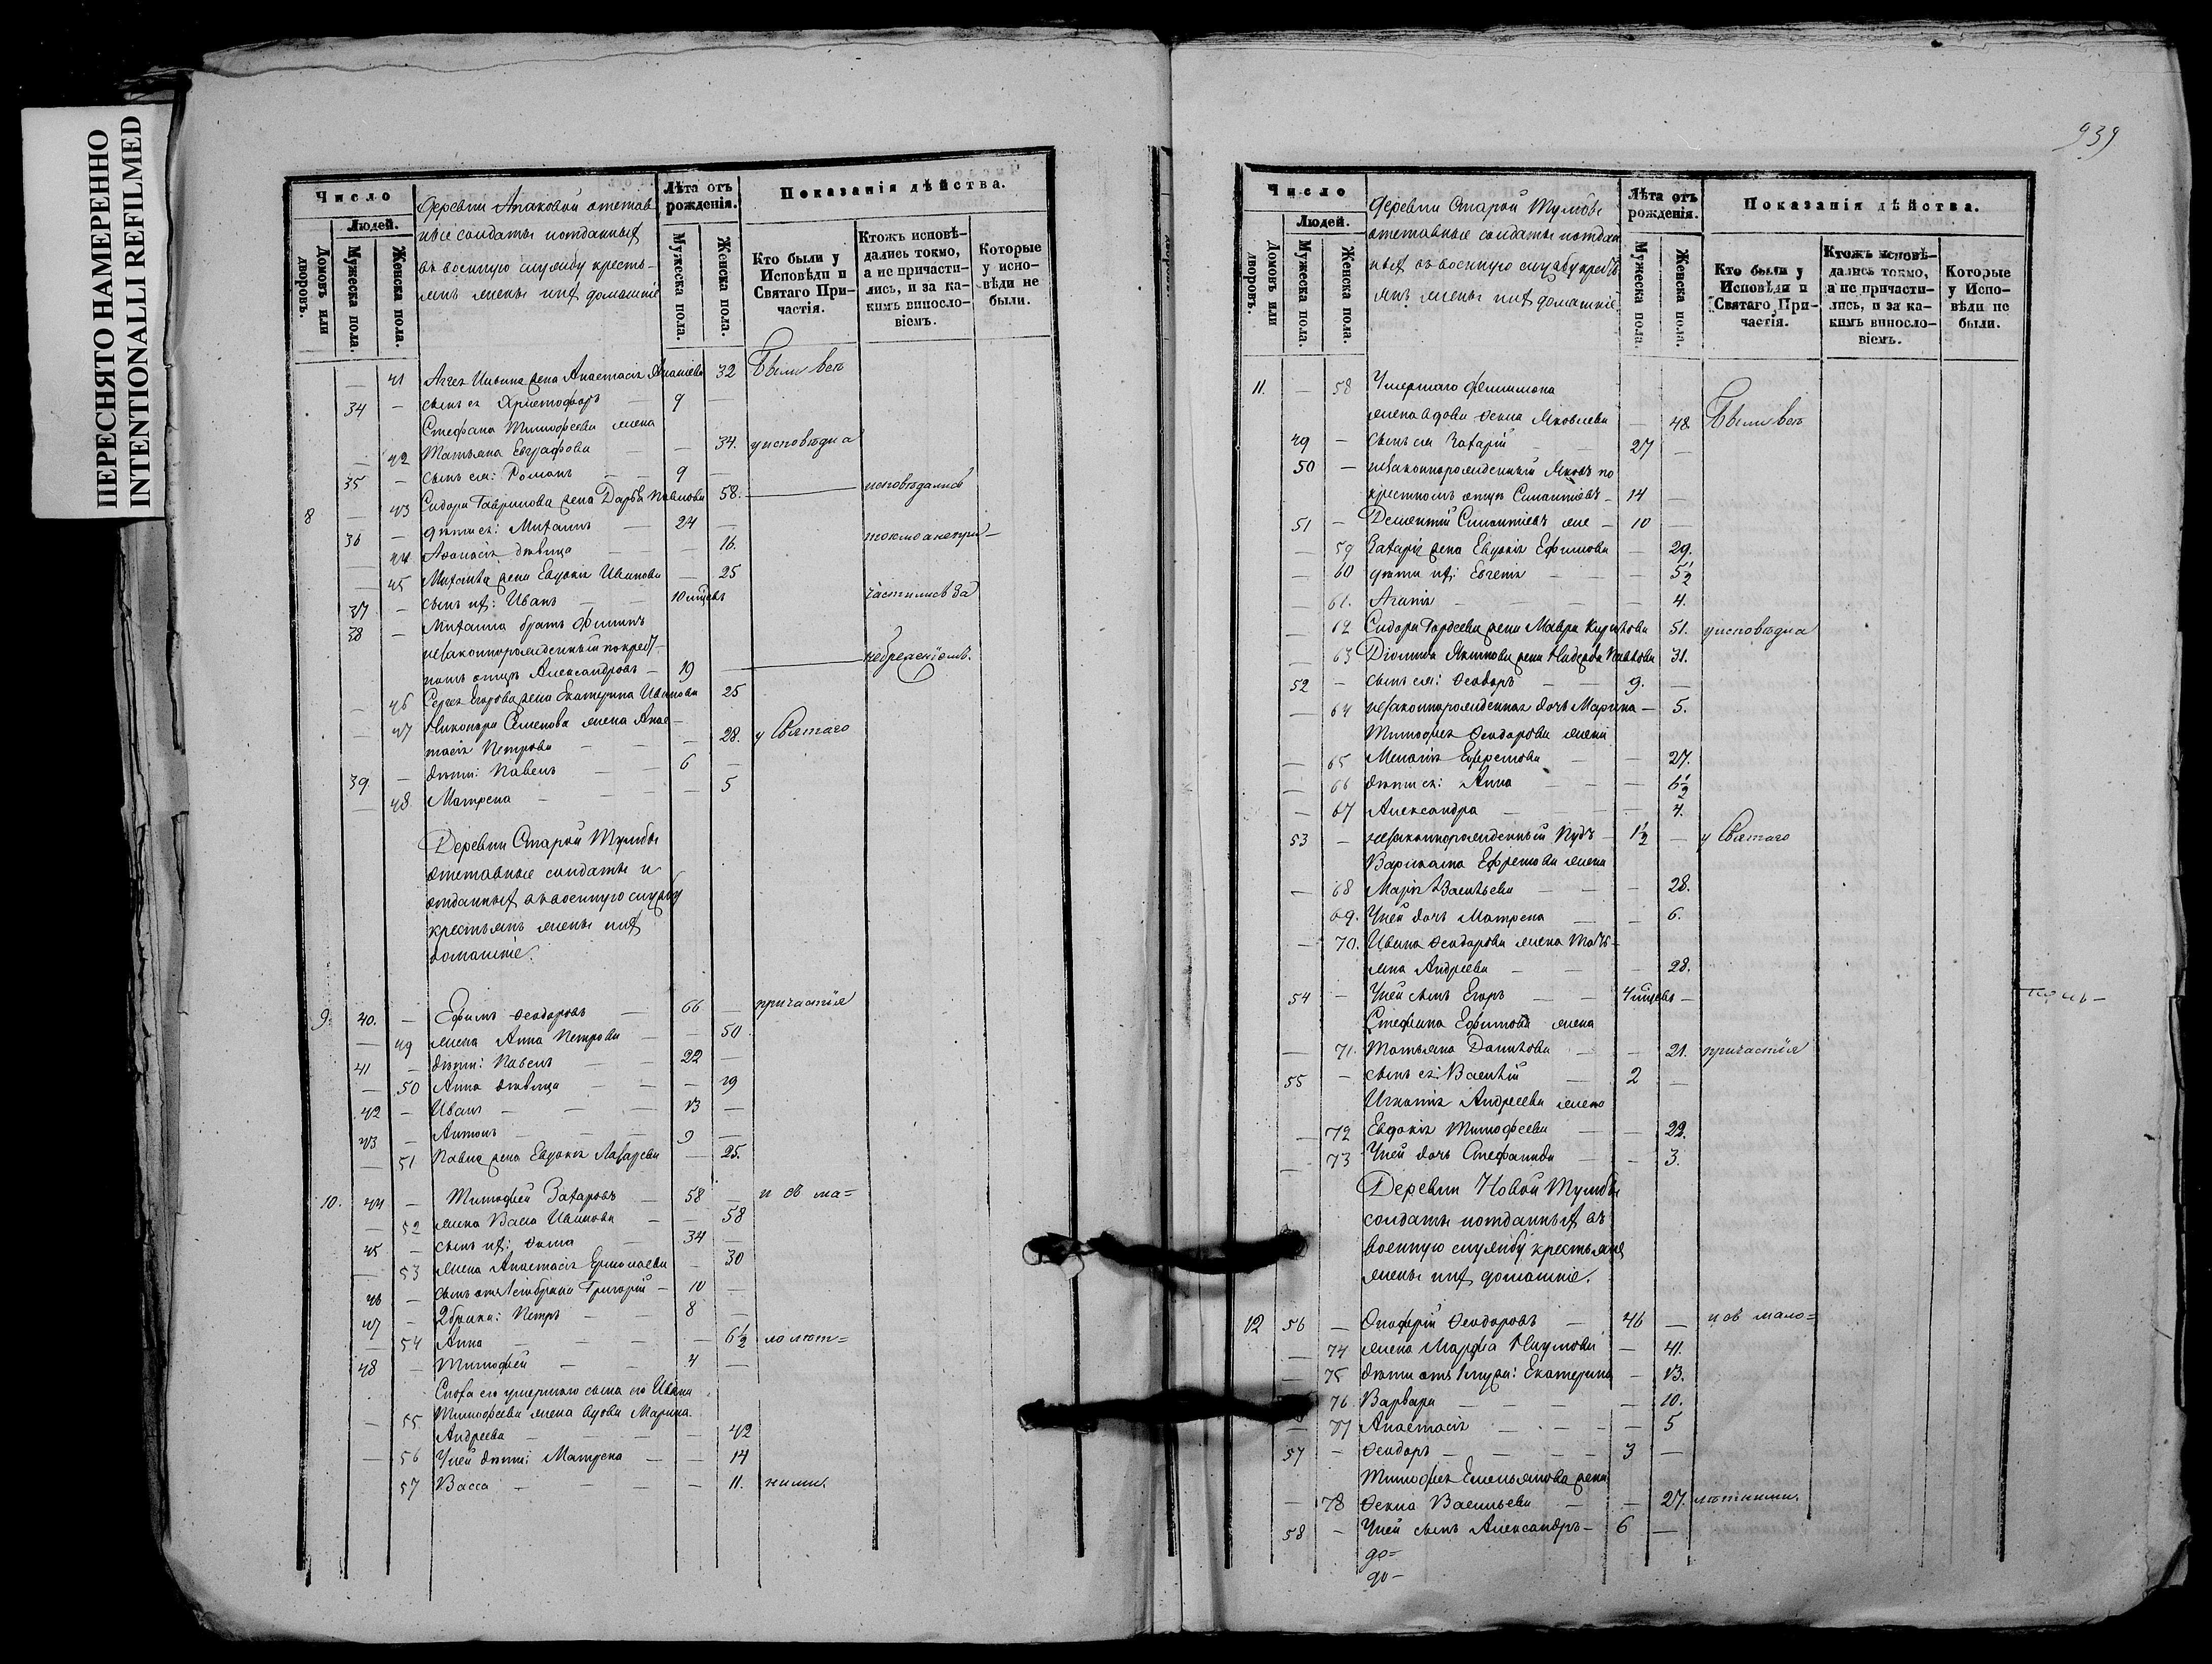 ПЕРЕСНЯТО НАМЕРЕННО
INTENTIONALLI REFILMED
939
Число
Людей.
Домовъ или дворовъ.
Мужеска пола.
Женска пола.
Деревни Апаковой отстав
ные солдаты иотданныхъ
въ военную службу кресть-
янъ жены ихъ домашніе
Лѣта отъ рожденія.
Мужеска пола.
Женска пола.
Показанія дѣйства.
Кто были у Исповѣди и Святаго Причастія.
Ктожъ исповѣдались токмо, а не причастились, и за какимъ винословіемъ.
Которые у исповѣди не были.
— 41 Агея Ильина жена Анастасія Ананіева 32 Были всѣ
34 — сынъ ея Христофоръ — 9 —
Стефана Тимофеева жена
— 42 Татьяна Евграфова — — 34. уисповѣди
35 — сынъ ея: Романъ — 9 —
8 — 43 Сидора Гаврилова жена Дарья Павлова 58. — исповѣдались
36 — дѣти ея: Михаилъ — 24 —
— 44 Аѳанасія дѣвица — — 16. токмо анепри-
— 45 Михаила жена Евдокія Иванова — 25
37 — сынъ ихъ: Иванъ — 10 мцевъ частились за
38 — Михаила братъ Филиппъ
незаконнорожденный покрест-
номъ отцѣ Александровъ — 19 — небреженіемъ.
— 46 Сергея Егорова жена Екатерина Иванова 25
— 47 Никонора Семенова жена Анас-
тасія Петрова — — — 28. у Святаго
39. — дѣти: Павелъ — — 6 —
— 48 Матрена — — — 5
Деревни Старой Тумбы
отставные солдаты и
отданныхъ въвоенную службу
крестьянъ жены ихъ
домашніе.
9. 40. — Ефимъ Ѳеодоровъ — 66 — причастія
— 49 жена Анна Петрова — — 50
41 — дѣти: Павелъ — — 22 —
— 50 Анна дѣвица — — — 19
42 — Иванъ — — — 13 —
43 — Антонъ — — — 9 —
— 51 Павла жена Евдокія Лазарева — 25.
10. 44 — Тимофей Захаровъ — 58 — и съ ма=
— 52 жена Васса Иванова — — 58
45 — сынъ ихъ: Ѳома — 34 —
— 53 жена Анастасія Ермолаева — 30
46 — сынъ отъ 1го брака Григорій — 10 —
47 — 2 брака: Петръ — — 8 —
— 54 Анна — — — — 6½ лолѣт=
48 — Тимофей — — 4 —
Сноха его умершаго сына его Ивана
— 55 Тимофеева жена вдова Марина
Андреева — — — — 42
— 56 Уней дѣти: Матрена — — 14
57 Васса — — — — 11. ними.
Число
Людей.
Домовъ или дворовъ.
Мужеска пола.
Женска пола.
Деревни Старой Тумбы
отставные солдаты иотдан
ныхъ въ военную службу кресть
янъ жены ихъ домашніе.
Лѣта отъ рожденія.
Мужеска пола.
Женска пола.
Показанія дѣйства.
Кто были у Исповѣди и Святаго Причастія.
Ктожъ исповѣдались токмо, а не причастились, и за какимъ винословіемъ.
Которые у Исповѣди не были.
11. — 58 Умершаго Филимона
жена вдова Ѳекла Яковлева — 48. Были всѣ
49 — сынъ ея Захарій 27 —
50 — незаконнорожденный Яковъ по
крестномъ отцѣ Силантіевъ — 14 —
51 — Дементій Силантіевъ же — 10 —
— 59 Захарія жена Евдокія Ефимова — 29.
— 60 дѣти ихъ: Евгенія — — — 5½
— 61. Агапія — — — — 4.
— 62 Сидора Гордеева жена Мавра Кирилова 51. уисповѣди
— 63 жена Надежда Павлова 31.
52 — сынъ ея: Ѳеодоръ — — 9. —
— 64 незаконнорожденная дочь Марина — 5.
Тимофея Ѳеодорова жена
— 65 Меланія Ефремова — — 27.
— 66 дѣти ея: Анна — — — 6½
— 67 Александра — — — 4.
53 — незаконнорожденный Пудъ — 1½ — у Святаго
Варлаама Ефремова жена
— 68 Марія Васильева — — — 28.
69. Уней дочь Матрена — — 6.
— 70. Ивана Ѳеодорова жена Тать-
яна Андреева — — — 28.
54 — Уней сынъ Егоръ — — 4 мцевъ —
Стефана Ефимова жена
— 71. Татьяна Данилова — — 21. причастія
55 — сынъ ея: Василій — 2 —
Игнатія Андреева жена
— 72 Евдокія Тимофеева — — 22.
— 73 Уней дочь Стефанида — — 3.
Деревни Новой Тумбы
солдаты иотданныхъ въ
военную службу крестьянъ
жены ихъ домашніе.
12 56 — Онофрій Ѳеодоровъ — 46 — исъ мало=
— 74 жена Марфа Наумова — 41.
— 75 дѣти отъ 1 мужа: Екатерина — 13.
76 Варвара — — — — 10.
— 77 Анастасія — — — 5
57 — Ѳеодоръ — — — — 3 —
Тимофея Емельянова жена
— 78 Ѳекла Васильева — — 27. лѣтними.
58 — Уней сынъ Александръ — 6 —
до=
до-